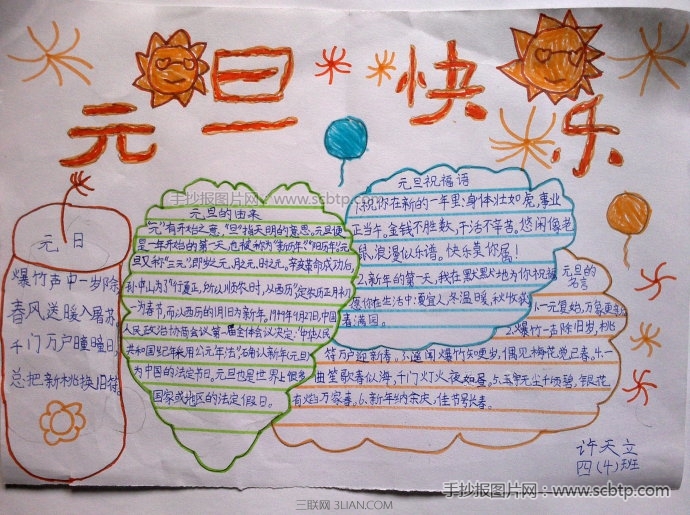 元旦快乐
元日
爆竹声中一岁除
春风送暖入屠苏。
千门万户曈曈日,
总把新桃换旧符。
手抄报图片网：www.scbtp.com
元旦的由来
"元"有开始之意,"旦"指天明的意思。元旦便
是一年开始的第一天,也被称为"新历年""阳历年"。元
旦又称"三元",即岁之元、月之元、时之元。辛亥革命成功后,
孙中山为了"行夏正,所以顺农时,从西历"定农历正月初
一为春节,而以西历的1月1日为新年。1949年9月27日,中国
人民政治协商会议第一届全体会议决定:"中华人民
共和国纪年采用公元年法"
为中国的法定节日。元旦也是世界上很多
国家或地区的法定假日。
元旦祝福语
1.祝你在新的一年里:身体壮如虎,事业
正当午。金钱不胜数,干活不辛苦。悠闲像老
鼠,浪漫似乐谱。快乐莫你属!
2.新年的第一天,我在默默地为你祝福
愿你在生活中:夏宜人,冬温暖,秋收获
春满园。
元旦的
名言
1.一元复始,万象更新
2.爆竹一声除旧岁,桃
符万户迎新春。3.遥闻爆竹知更岁,偶见梅花觉已春。4.一
曲笙歌春似海,千门灯火夜如昼。5.玉宇无尘千顷碧,银花
有焰万家春。6.新年纳余庆,佳节号长春。
许天立
四(4)班
手抄报图片网：www.scbtp.com
三联网 3LIAN.COM